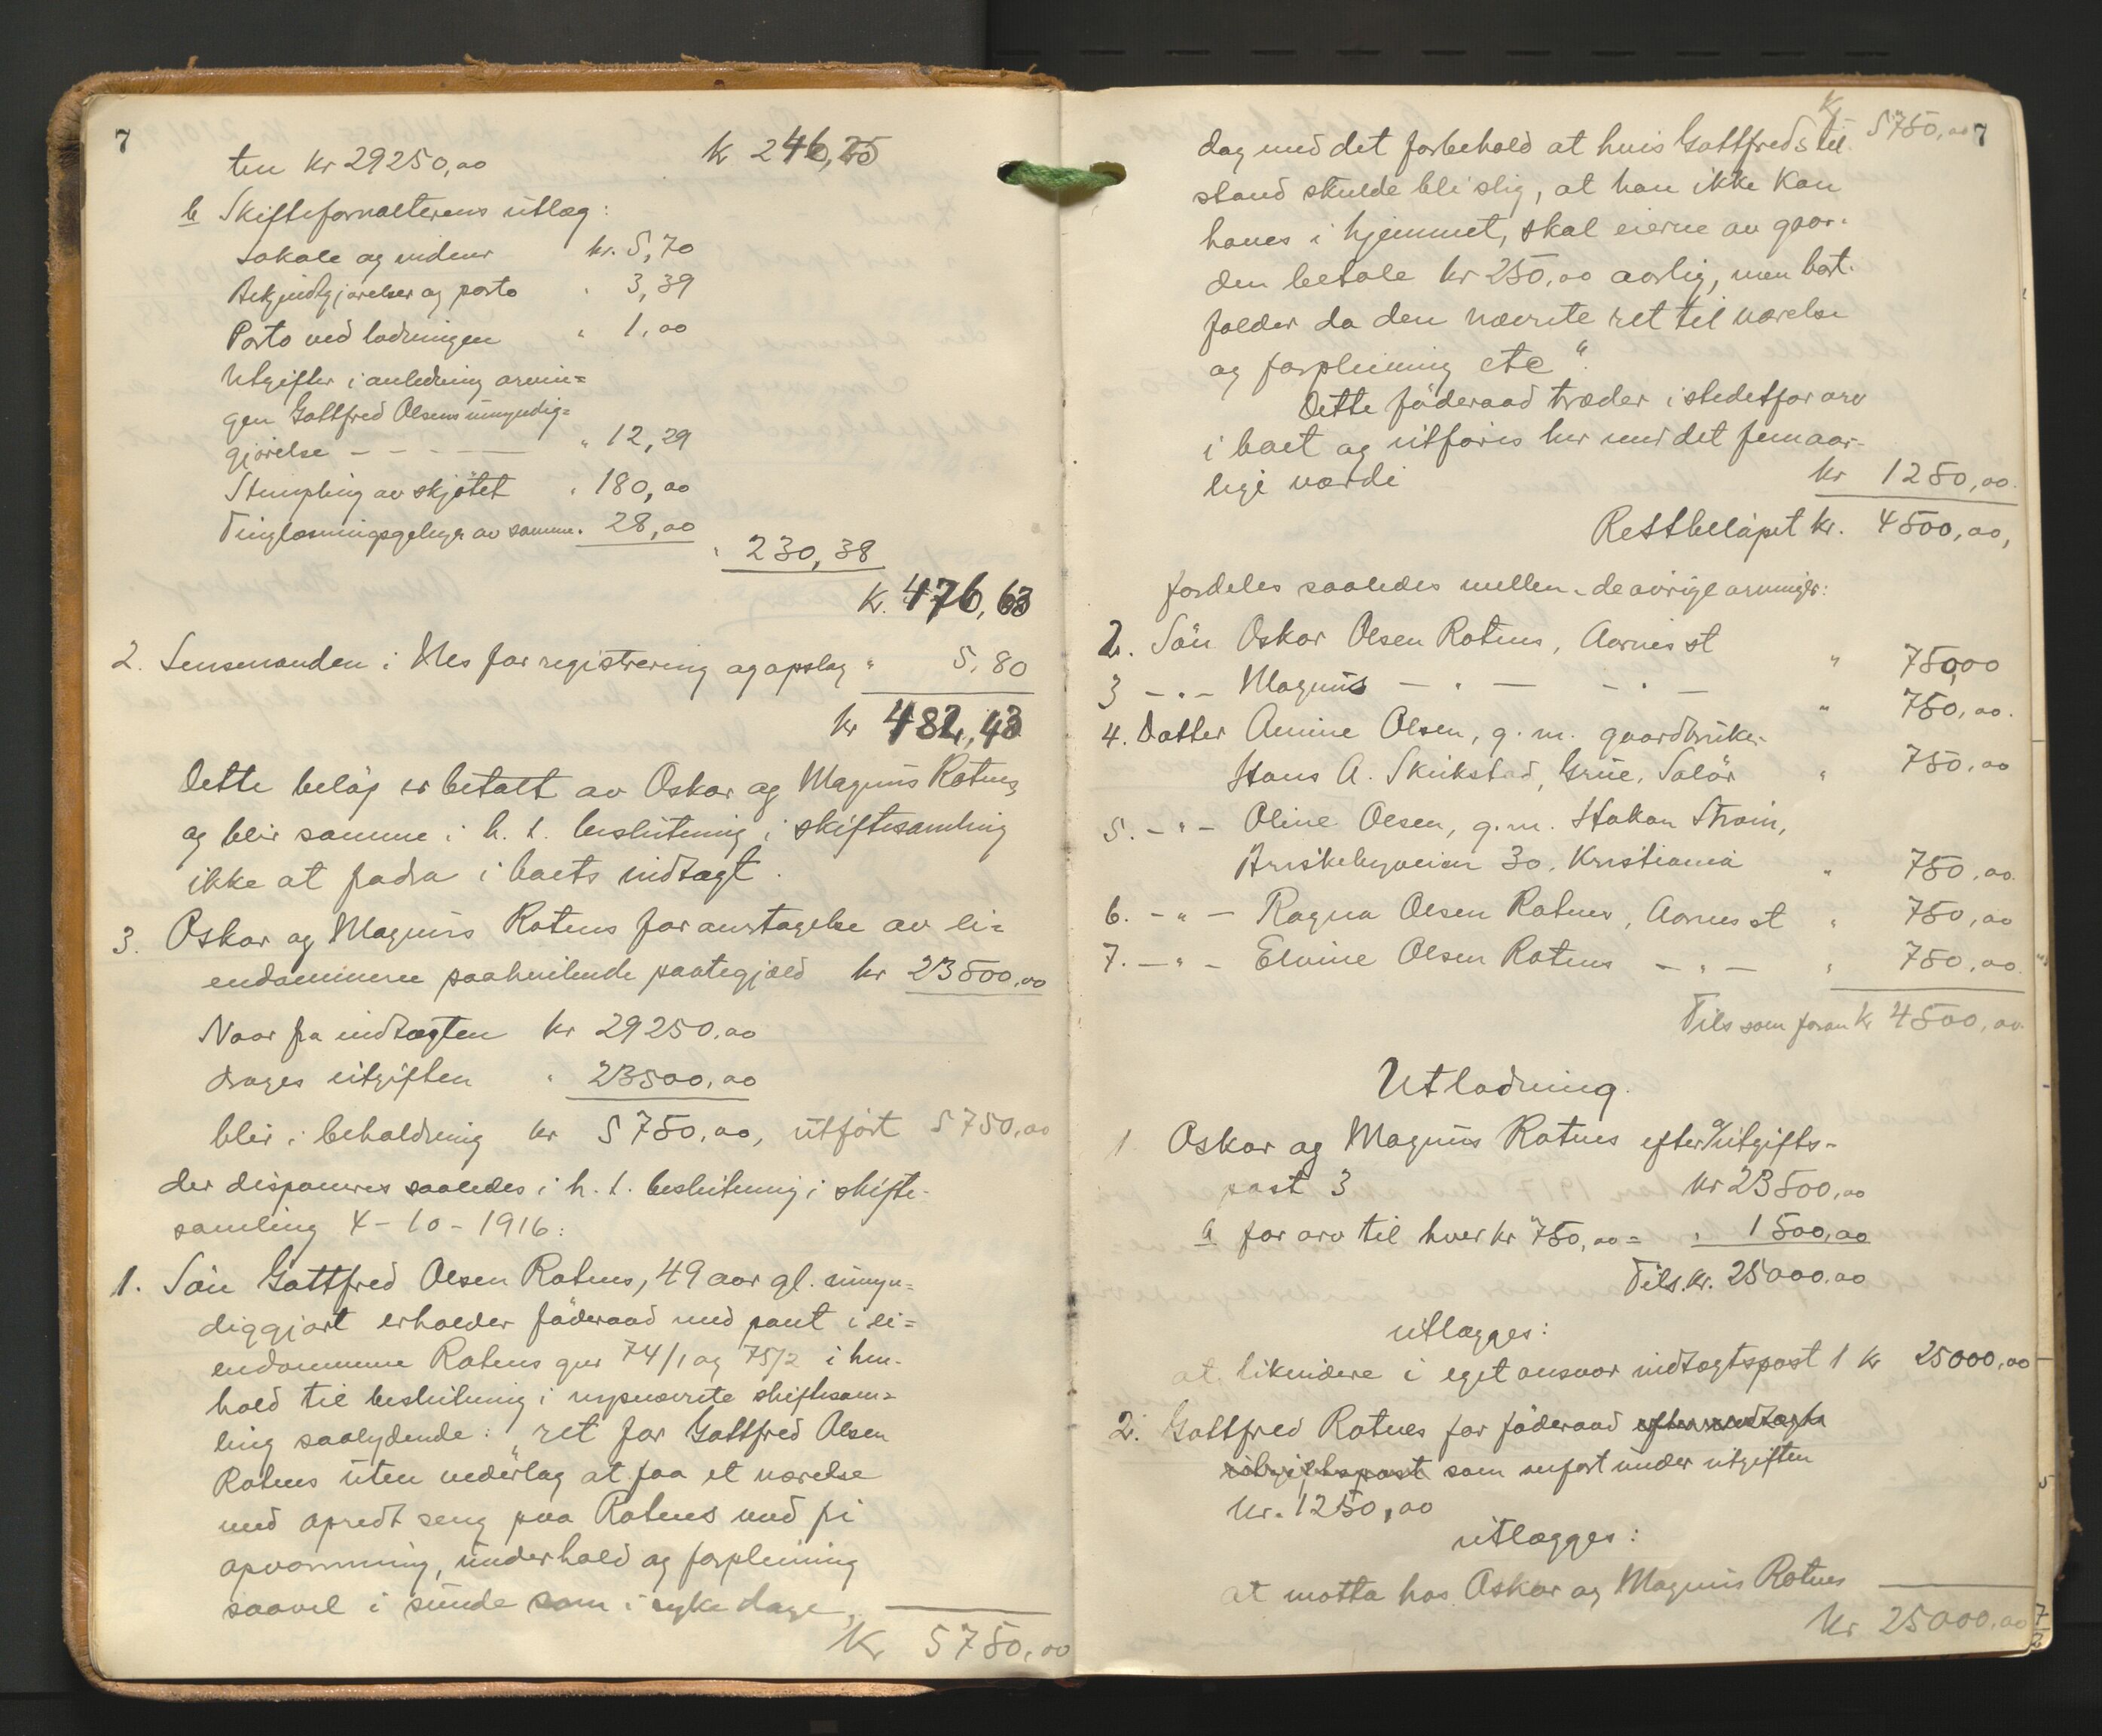 7
ten kr 29250,00 kr 246,25
b Skifteforvalterens utlæg:
Lokale og vidner kr. 5,70
Bekjendtgjørelser og porto " 3,39
Porto ved lodningen " 1,00
Utgifter i anledning arvin=
gen Gottfred Olsens umyndig=
gjørelse - - - - " 12,29
Stempling av skjøtet " 180,00
Tinglæsningsgebyr av samme " 28,00
" 230,38
kr. 476,63
2. Lensmanden i Nes for registrering og opslag " 5,80
kr 482,43
Dette beløp er betalt av Oskar og Magnus Rotnes
og blir samme i h. t. beslutning i skiftesamling
ikke at fodra i boets indtægt.
3. Oskar og Magnus Rotnes for overtagelse av ei=
endommene paahvilende pantegjæld kr 23500,00
Naar fra indtægten kr 29250,00
drages utgiften " 23500,00
blir i beholdning kr 5750,00, utført 5750,00
der disponeres saaledes i h. t. beslutning i skifte-
samling 4-10-1916:
1. Søn Gottfred Olsen Rotnes, 49 aar gl. umyn=
diggjort erholder föderaad med pant i ei=
endommene Rotnes gnr 74/1 og 75/2 i hen-
hold til beslutning i nysnævnte skiftesam=
ling saalydende: "ret for Gottfred Olsen
Rotnes uten vederlag at faa et værelse
med opredt seng paa Rotnes med fri
opvarmning, underhold og forpleining
saavel i sunde som i syke dage,
Kr 5750,00
Kr 5750,00 7
dog med det forbehold at hvis Gottfreds til-
stand skulde bli slig, at han ikke kan
haves i hjemmet, skal eierne av gaar-
den betale kr 250,00 aarlig, men bort-
falder da den nævnte ret til værelse
og forpleining etc".
Dette föderaad træder i stedetfor arv
i boet og utføres her med det femaar-
lige værdi kr 1250,00
Restbeløpet kr. 4500,00,
fordeles saaledes mellem de øvrige arvinger:
2. Søn Oskar Olsen Rotnes, Aarnes st " 750,00
3 -"- Magnus - " - - " - " 750,00.
4. Datter Amine Olsen, g. m. gaardbruker
Hans A. Skukstad, Grue, Solør " 750,00
5. -"- Oline Olsen, g. m. Hakon Strøm,
Briskebyveien 30, Kristiania " 750,00
6. -"- Ragna Olsen Rotnes, Aarnes st " 750,00
7. -"- Elvine Olsen Rotnes - " - " 750,00
Tils som foran kr 4500,00
Utlodning.
1 Oskar og Magnus Rotnes efter a/utgifts-
post 3 kr 23500,00
b for arv til hver kr 750,00 = " 1500,00
Tils. kr. 25000.00
utlægges:
at likvidere i eget ansvar indtægtspost 1 kr 25000,00
2. Gottfred Rotnes for föderaad efter indtægts
utgiftspost som anført under utgiften
kr. 1250,00
utlægges:
at motta hos Oskar og Magnus Rotnes
kr 25000,00